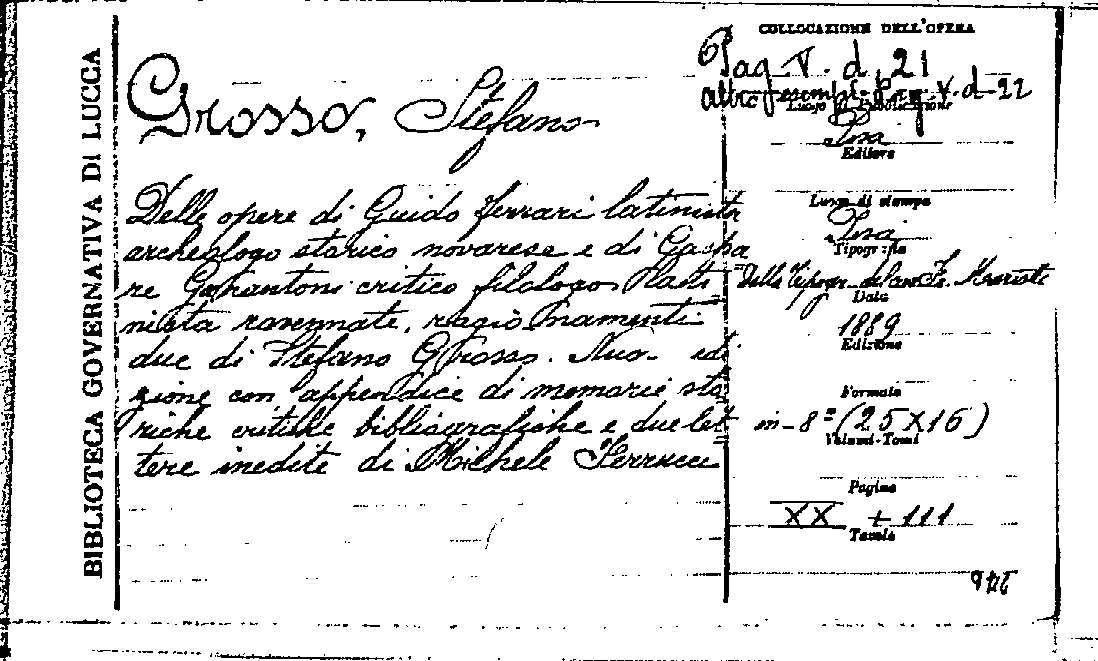 BIBLIOTECA GOVERNATIVA DI LUCCA
Grosso, Stefano
Delle opere di Guido Ferrari latinista
archeologo storico novarese e di Gaspa
re Garantoni critico filologo
nista ravennate, ragionamenti
due di Stefano Grosso. Nuo. edi
zione con appendice di memorie sto
riche critiche bibliografiche e due let
tere inedite di Michele Ferrucci
COLLOCAZIONE DELL'OPERA
Pag. V. d. 21
altro esempl. Pag. V. d. 22
Luogo di Pubblicazione
Pisa
Editore
Luogo di stampa
Pisa
Tipografia
Dalla Tipogr. del cav. F. Mariotti
Data
1889
Edizione
Formato
in-8º (25X16)
Volumi-Tomi
Pagine
XX + 111
Tavole